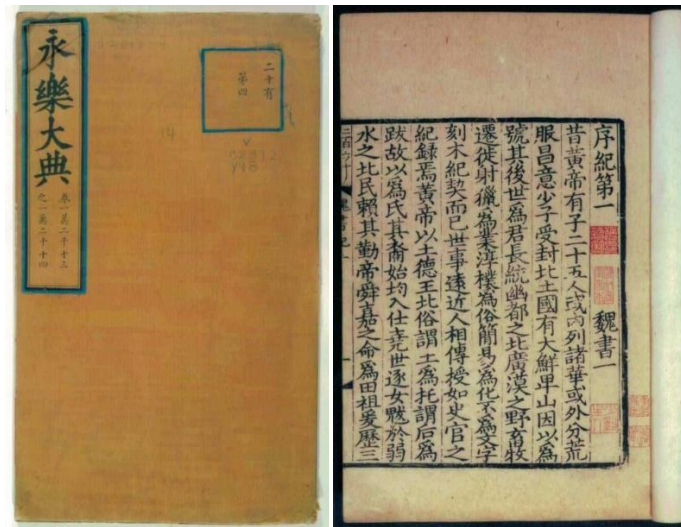 永樂大典
卷一萬二千十三
之一萬二千十四
二十有
第四
14
序紀第一
魏書一
昔黃帝有子二十五人或內列諸華或外分荒
服昌意少子受封北土國有大鮮卑山因以為
號其後世為君長統幽都之北廣漠之野畜牧
遷徙射獵為業淳樸為俗簡易為化不為文字
刻木紀契而已世事遠近人相傳授如史官之
紀錄焉黃帝以土德王北俗謂土為托謂后為
跋故以為氏其裔始均入仕堯世逐女魃於弱
水之北民賴其勤帝舜嘉之命為田祖爰歷三